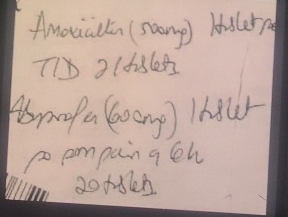 Amoxicillin (500mg) 1 tablet po
TID 21 tablets
Ibuprofen (600mg) 1 tablet
po prn pain q 6h
20 tablets